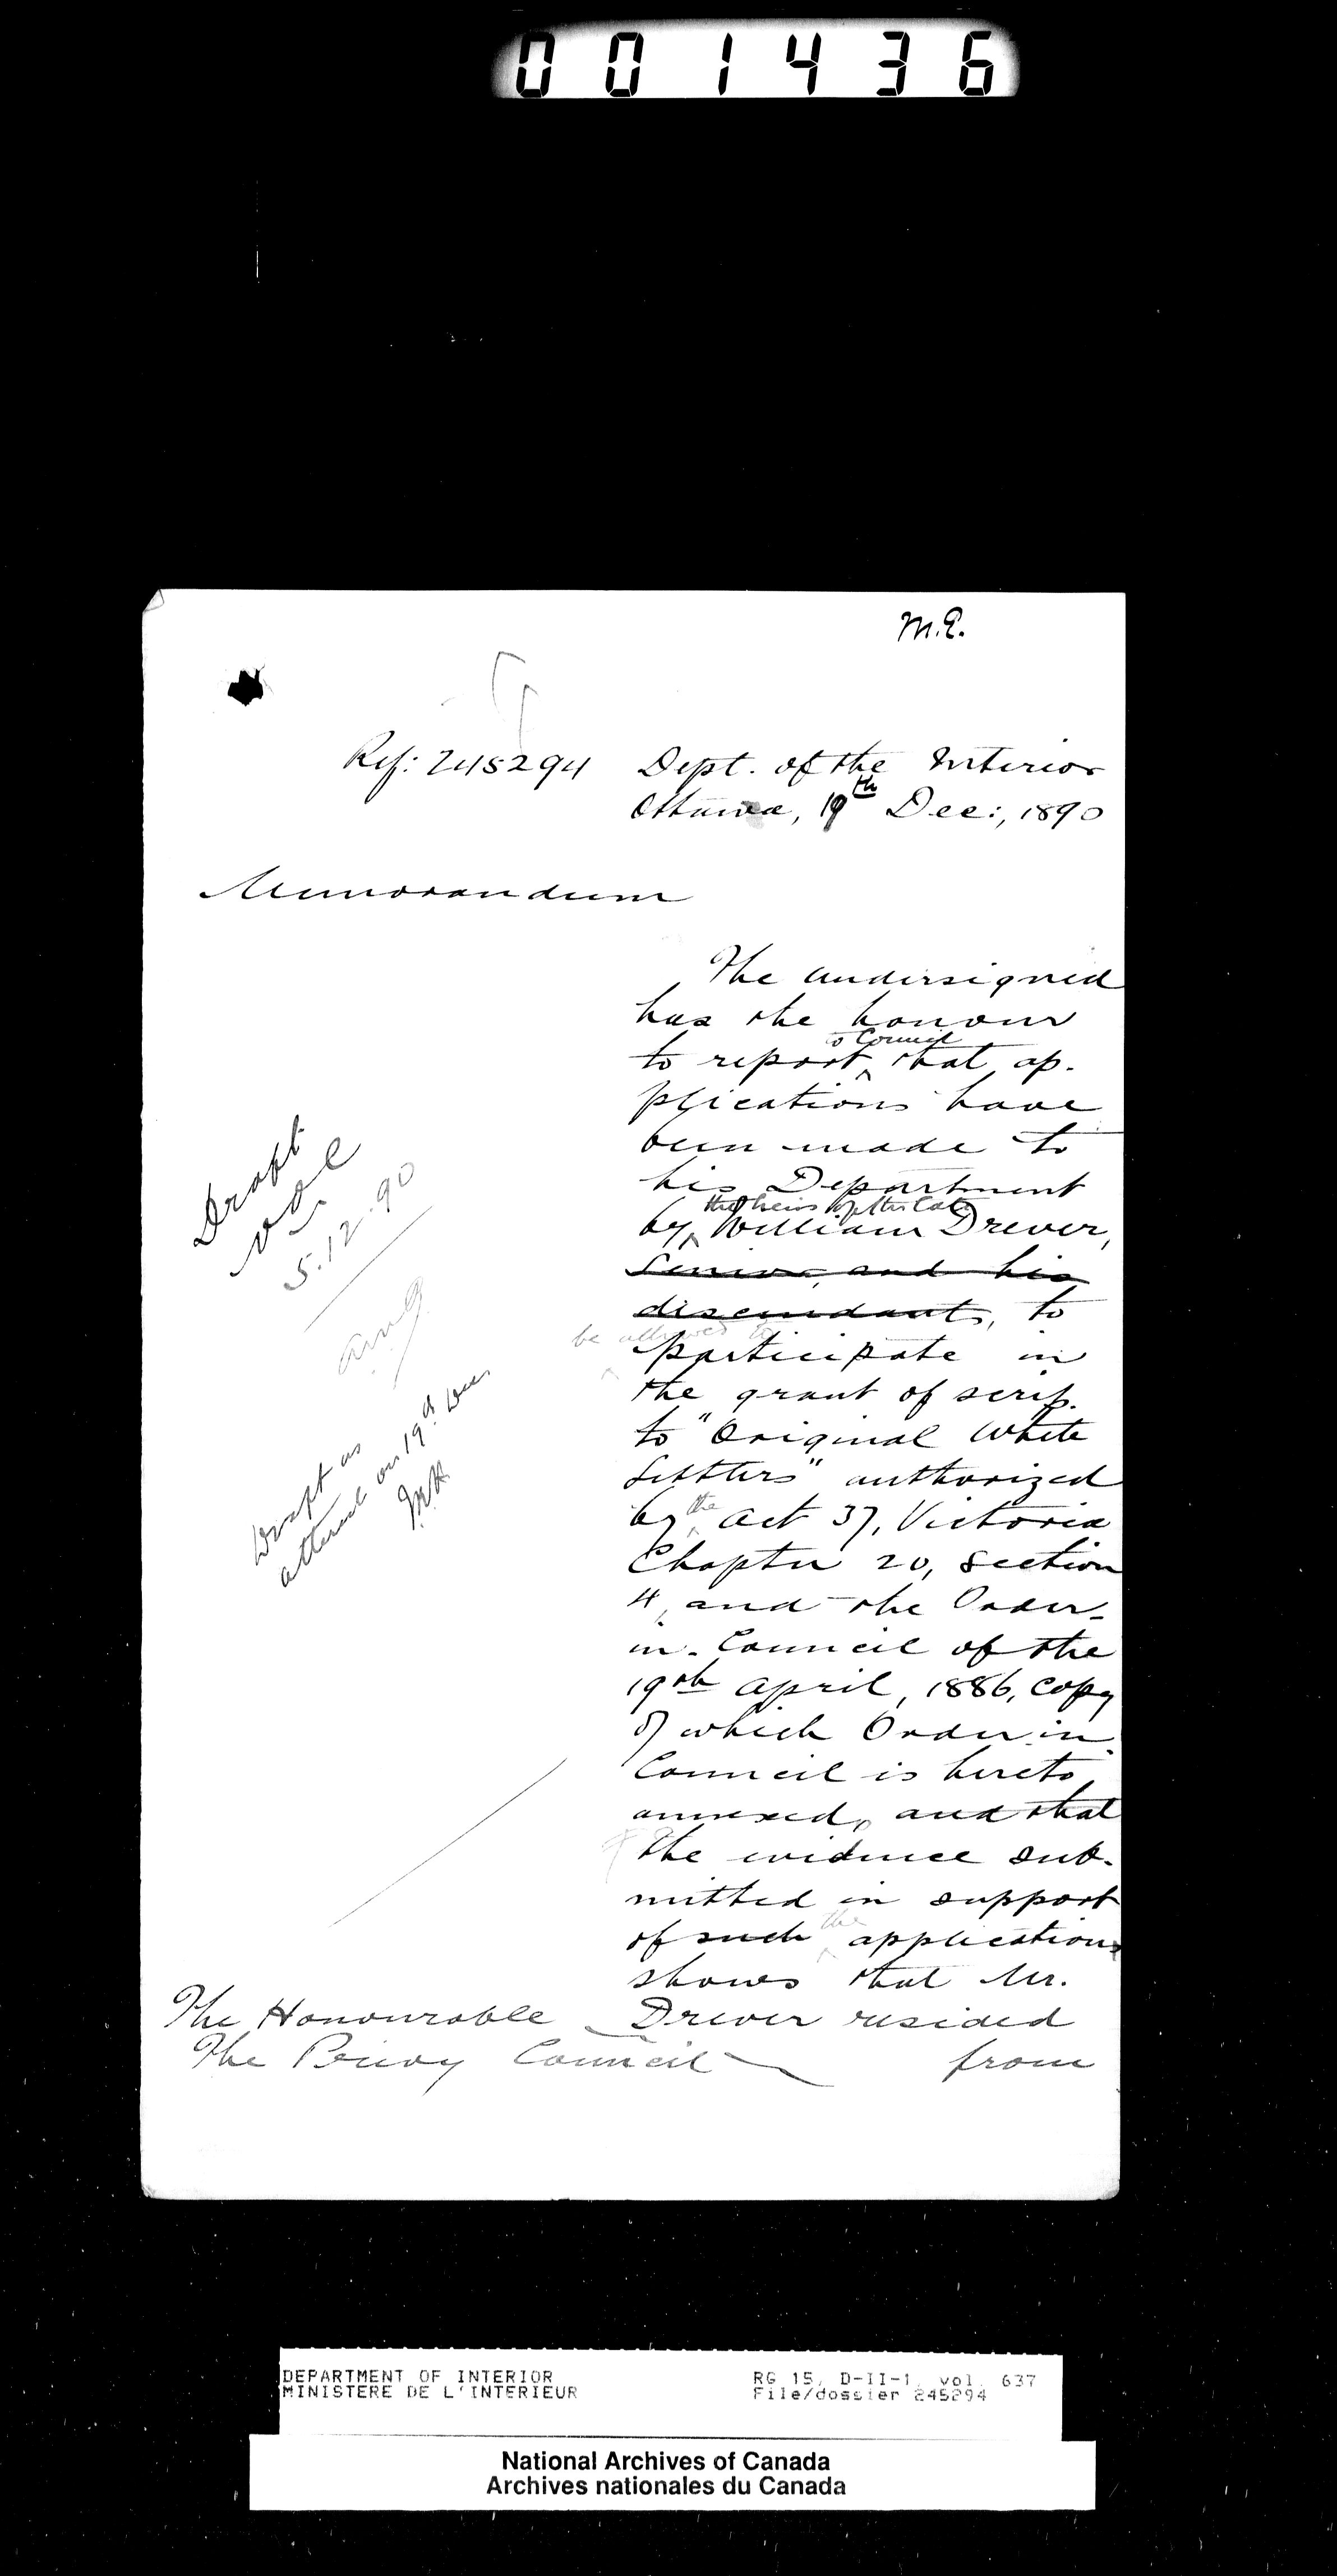 001436
M.E.
Ref: 245294 Dept. of the Interior
Ottawa, 19th Dec:, 1890
Memorandum
The undersigned
has the honour
to Council
to report that ap-
plications have
been made to
his Department
the heirs of the late
by William Drever,
Senior, and his
descendants, to
be allowed to
participate in
the grant of scrip
to "Original White
Settlers" authorized
by the Act 37, Victoria
Chapter 20, Section
4, and the Order-
in-Council of the
19th April, 1886, copy
of which Order in
Council is hereto
annexed, and that
the evidence sub-
mitted in support
of such the applications
shows that Mr.
Drever resided
from
The Honourable
The Privy Council
Draft
5.12.90
Draft as
altered on 19th Dec
DEPARTMENT OF INTERIOR
MINISTERE DE L'INTERIEUR
RG 15, D-II-1, vol. 637
File/dossier 245294
National Archives of Canada
Archives nationales du Canada